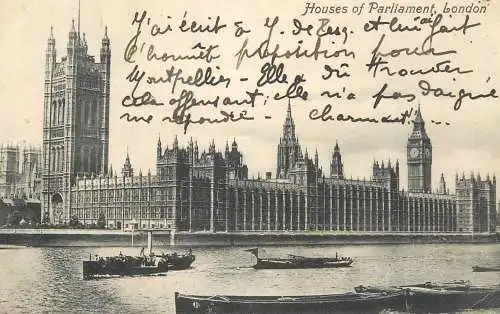 Houses of Parliament, London
J'ai écrit à Y. de Berg et lui ai fait
l'honnête proposition pour
Montpellier - Elle a dû trouver
cela offensant, elle n'a pas daigné
me repondre - charmant...